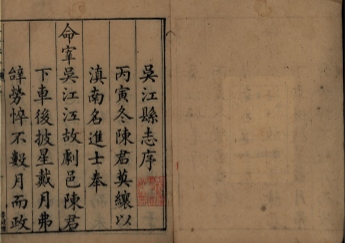 吳江縣志序
丙寅冬陳君莫纕以
滇南名進士奉
命宰吳江江故劇邑陳君
下車後披星戴月弗
辭勞悴不數月而政